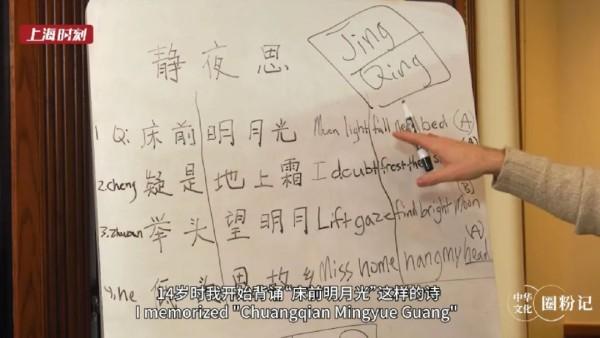 上海时刻
静夜思
Jing
Qing
1 Qi: 床前明月光 Moon light fall bed (A)
2. cheng 疑是地上霜 I doubt frost
3. Zhuan 举头望明月 Lift gaze find bright moon
(A)
4. He 乡 Miss home hang my head
14岁时我开始背诵“床前明月光”这样的诗
I memorized "Chuangqian Mingyue Guang"
中华文化 圈粉记